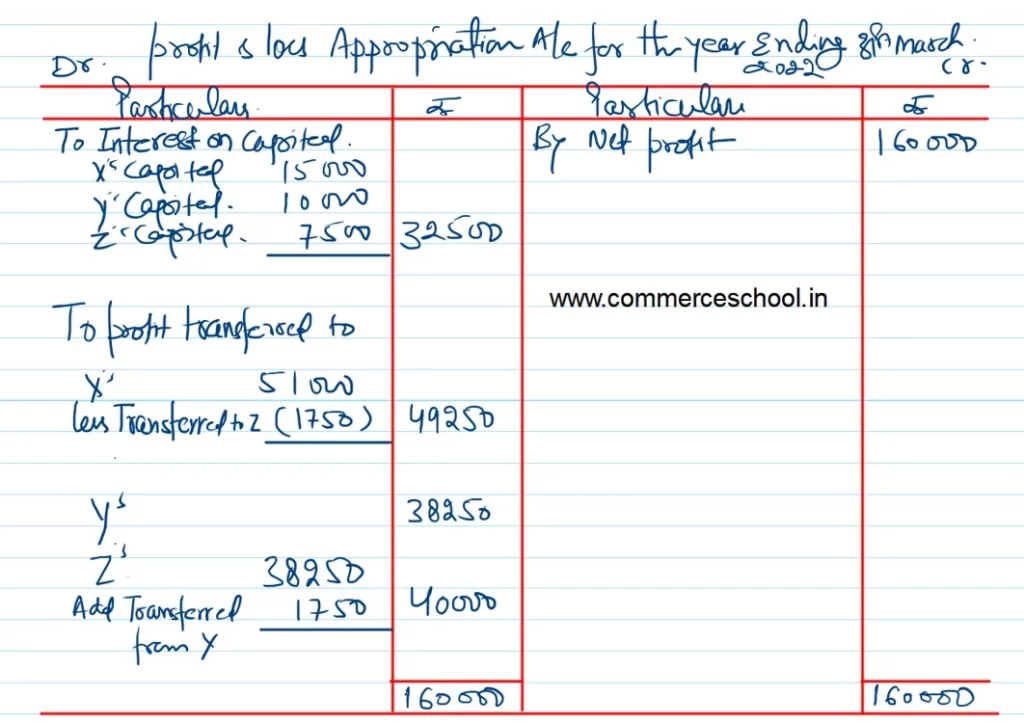 Profit & loss Appropriation A/c for the year Ending 31st March
Dr. 2022 Cr.
Particulars ₹ Particulars ₹
To Interest on Capital. By Net profit 160000
X's Capital 15000
Y's Capital. 10000
Z's Capital. 7500 32500
www.commerceschool.in
To profit transferred to
X's 51000
less Transferred to Z (1750) 49250
Y's 38250
Z's 38250
Add Transferred 1750 40000
from X
160000 160000